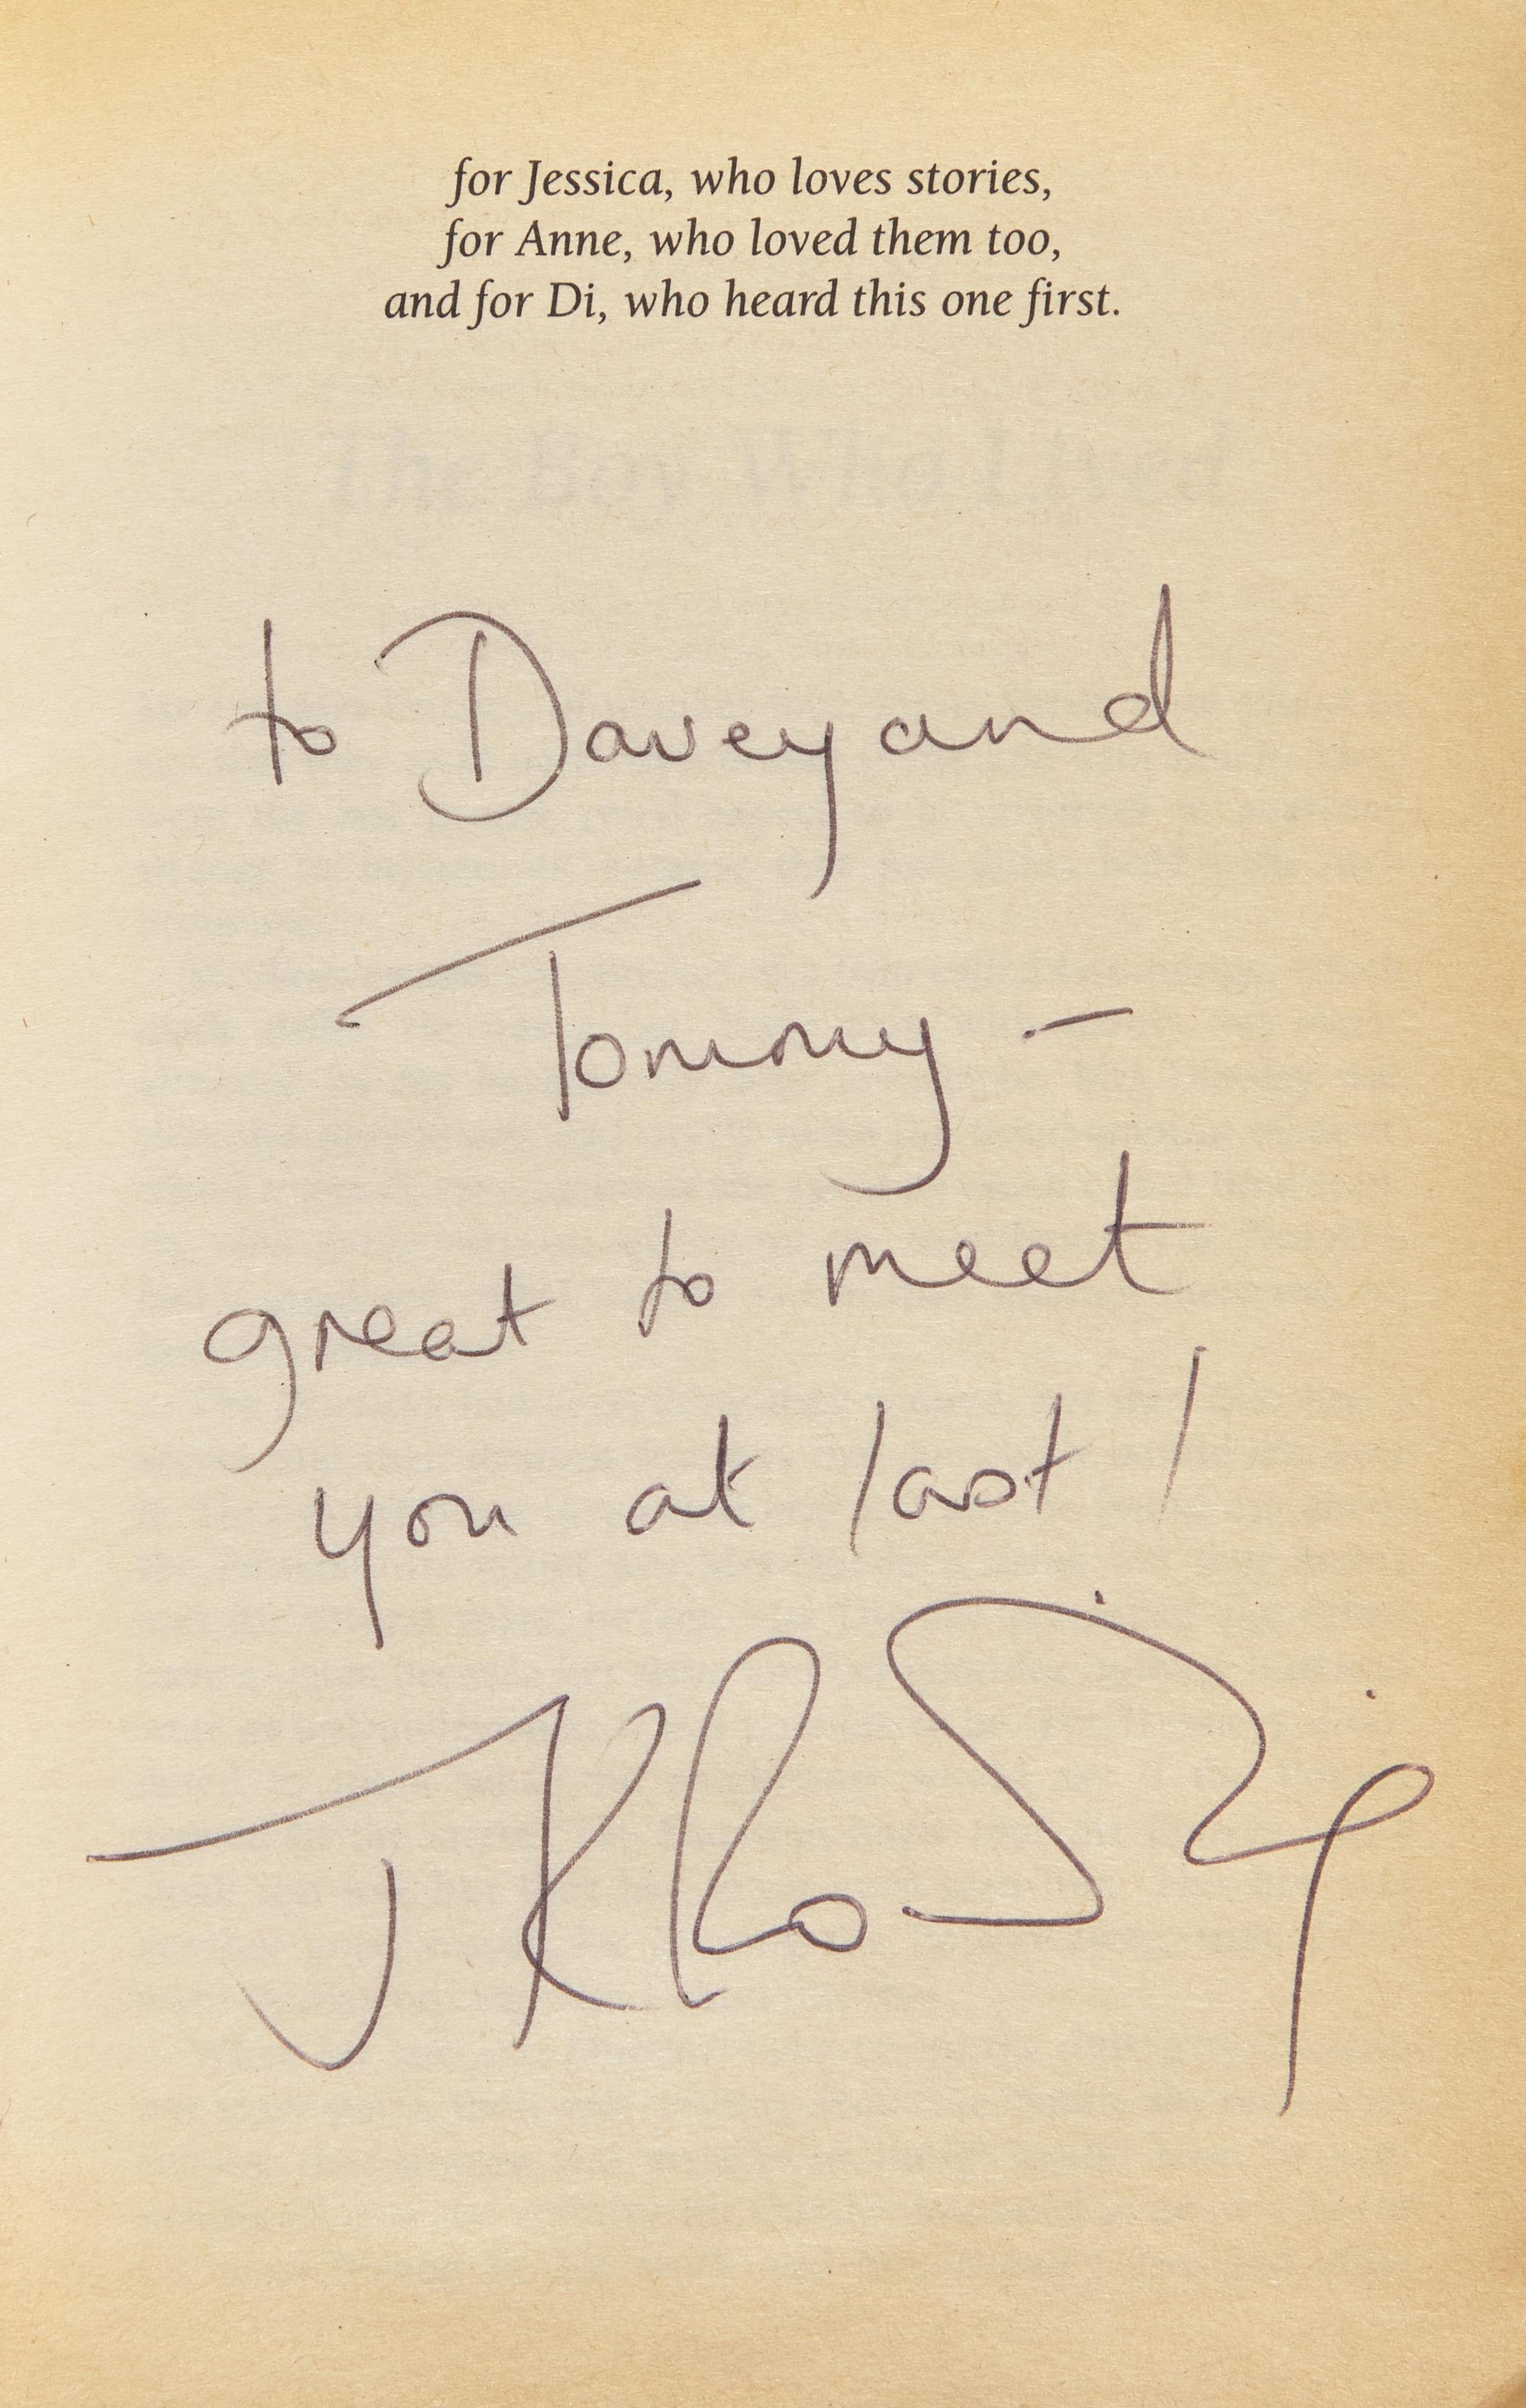 for Jessica, who loves stories,
for Anne, who loved them too,
and for Di, who heard this one first.
The Boy Who Lived
to Davey and
Tommy –
great to meet
you at last!
JK Rowling